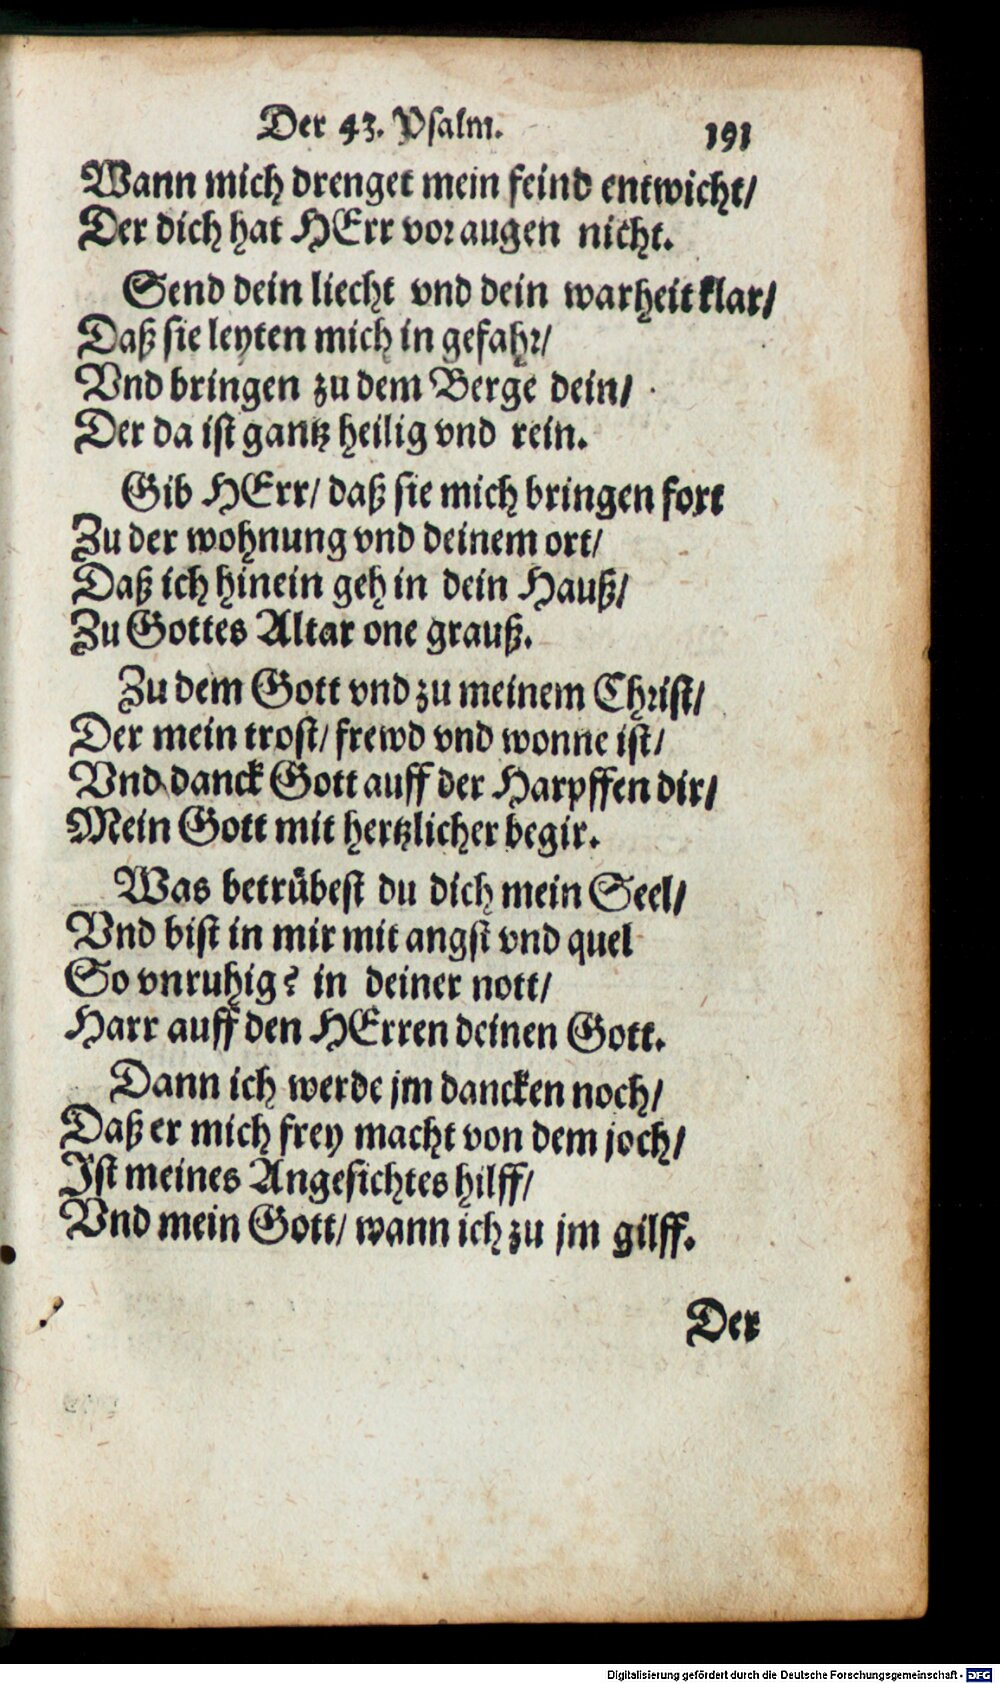 Der 43. Psalm. 191
Wann mich drenget mein feind entwicht/
Der dich hat HErr vor augen nicht.
Send dein liecht vnd dein warheit klar/
Daß sie leyten mich in gefahr/
Vnd bringen zu dem Berge dein/
Der da ist gantz heilig vnd rein.
Gib HErr/ daß sie mich bringen fort
Zu der wohnung vnd deinem ort/
Daß ich hinein geh in dein Hauß/
Zu Gottes Altar one grauß.
Zu dem Gott vnd zu meinem Christ/
Der mein trost/ frewd vnd wonne ist/
Vnd danck Gott auff der Harpffen dir/
Mein Gott mit hertzlicher begir.
Was betrübest du dich mein Seel/
Vnd bist in mir mit angst vnd quel
So vnruhig? in deiner nott/
Harr auff den HErren deinen Gott.
Dann ich werde jm dancken noch/
Daß er mich frey macht von dem joch/
Ist meines Angesichtes hilff/
Vnd mein Gott/ wann ich zu jm gilff.
Der
Digitalisierung gefördert durch die Deutsche Forschungsgemeinschaft - DFG